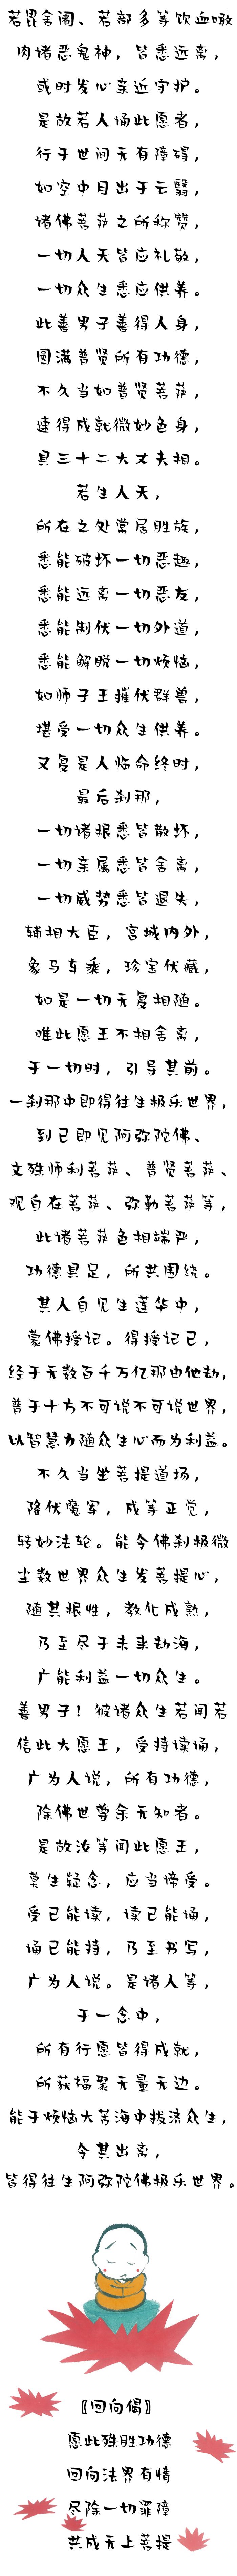 若毘舍阇、若部多等饮血啖
肉诸恶鬼神，皆悉远离，
或时发心亲近守护。
是故若人诵此愿者，
行于世间无有障碍，
如空中月出于云翳，
诸佛菩萨之所称赞，
一切人天皆应礼敬，
一切众生悉应供养。
此善男子善得人身，
圆满普贤所有功德，
不久当如普贤菩萨，
速得成就微妙色身，
具三十二大丈夫相。
若生人天，
所在之处常居胜族，
悉能破坏一切恶趣，
悉能远离一切恶友，
悉能制伏一切外道，
悉能解脱一切烦恼，
如师子王摧伏群兽，
堪受一切众生供养。
又复是人临命终时，
最后刹那，
一切诸根悉皆散坏，
一切亲属悉皆舍离，
一切威势悉皆退失，
辅相大臣，宫城内外，
象马车乘，珍宝伏藏，
如是一切无复相随。
唯此愿王不相舍离，
于一切时，引导其前。
一刹那中即得往生极乐世界，
到已即见阿弥陀佛、
文殊师利菩萨、普贤菩萨、
观自在菩萨、弥勒菩萨等，
此诸菩萨色相端严，
功德具足，所共围绕。
其人自见生莲华中，
蒙佛授记。得授记已，
经于无数百千万亿那由他劫，
普于十方不可说不可说世界，
以智慧力随众生心而为利益。
不久当坐菩提道场，
降伏魔军，成等正觉，
转妙法轮。能令佛刹极微
尘数世界众生发菩提心，
随其根性，教化成熟，
乃至尽于未来劫海，
广能利益一切众生。
善男子！彼诸众生若闻若
信此大愿王，受持读诵，
广为人说，所有功德，
除佛世尊余无知者。
是故汝等闻此愿王，
莫生疑念，应当谛受。
受已能读，读已能诵，
诵已能持，乃至书写，
广为人说。是诸人等，
于一念中，
所有行愿皆得成就，
所获福聚无量无边。
能于烦恼大苦海中拔济众生，
令其出离，
皆得往生阿弥陀佛极乐世界。
〖回向偈〗
愿此殊胜功德
回向法界有情
尽除一切罪障
共成无上菩提